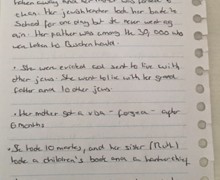 taken away and her mother was forced to
clean. Her jewish teacher took her back to
School for one day but she never went ag
ain. Her father was among the 30,000 who
were taken to Buchenwald.
• She were evicted and sent to live with
other jews. She went to live with her grand
father and 10 other jews.
• Her mother got a visa - foreign - after
6 months
• She took 10 marks, and her sister (Ruth)
took a children's book and a